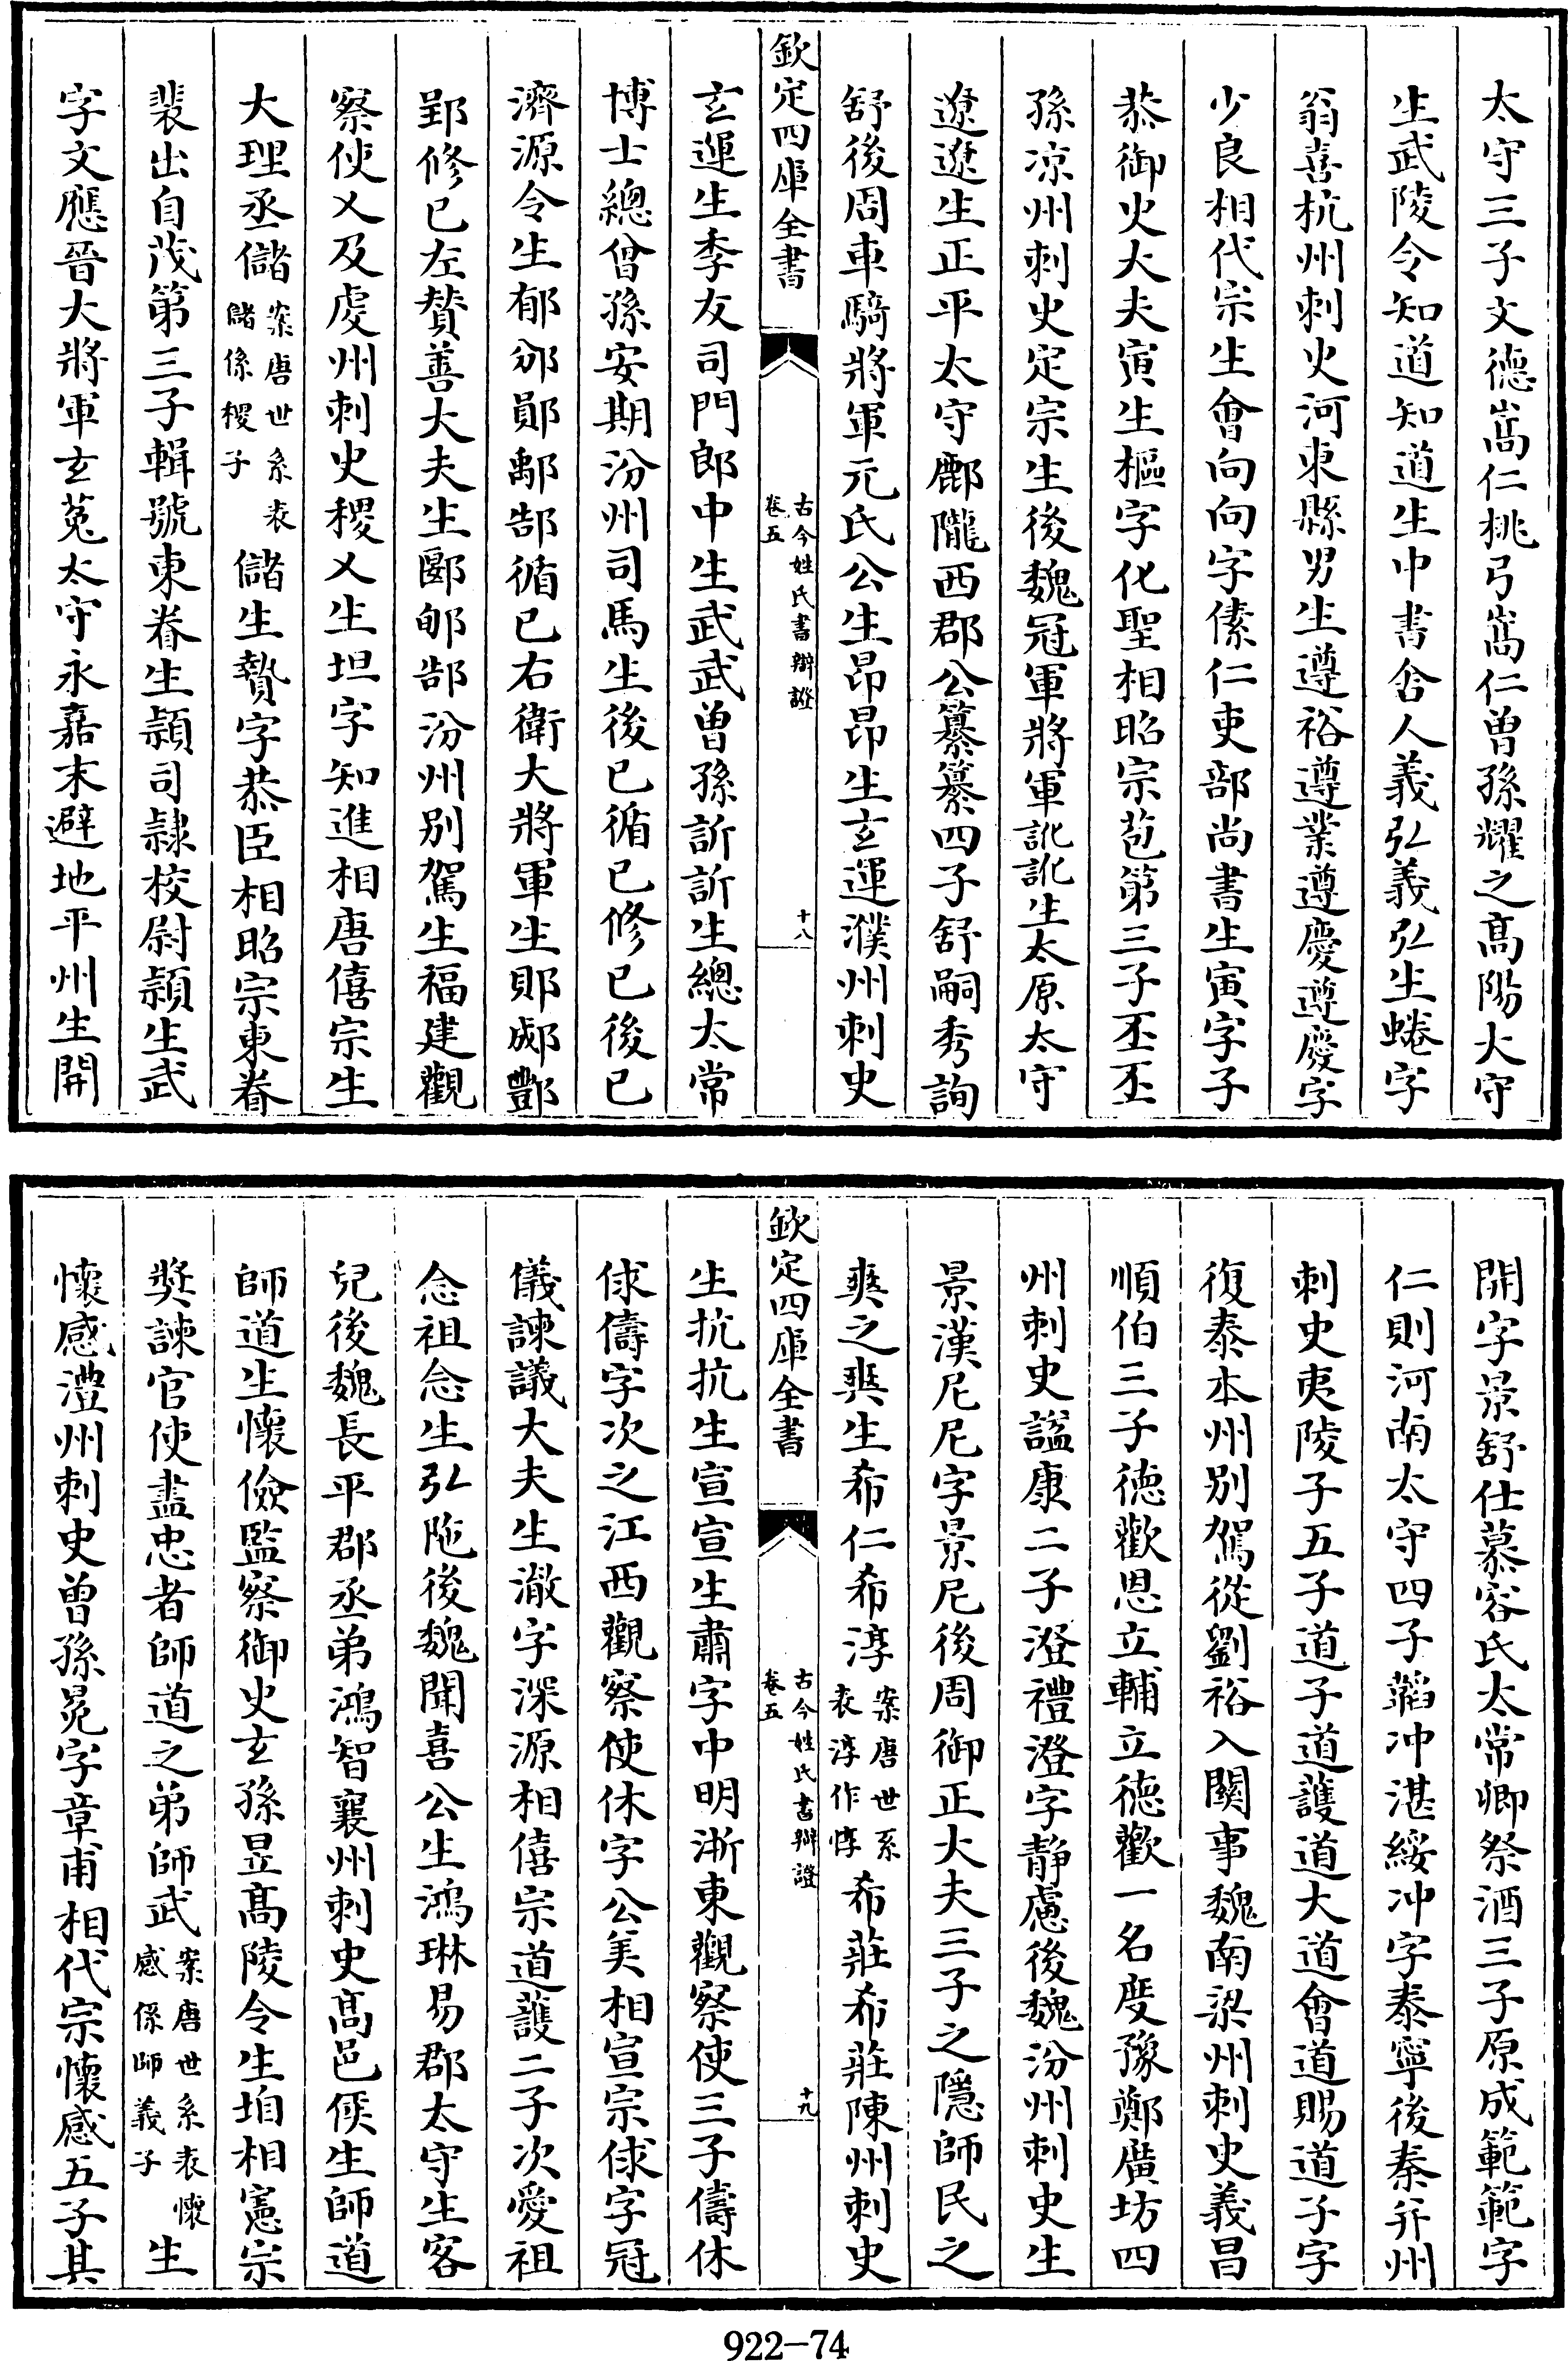 太守三子文德嵩仁桃弓嵩仁曽孫耀之髙陽太守
生武陵令知道知道生中書舍人義弘義弘生蜷字
翁喜杭州刺史河東縣男生遵裕遵業遵慶遵慶字
少良相代宗生會向向字傃仁吏部尚書生寅字子
恭御史大夫寅生樞字化聖相昭宗苞第三子丕丕
孫凉州刺史定宗生後魏冠軍將軍訛訛生太原太守
遼遼生正平太守酈隴西郡公纂纂四子舒嗣秀詢
舒後周車騎將軍元氏公生昂昂生玄運濮州刺史
欽定四庫全書
古今姓氏書辯證
卷五
十八
玄運生季友司門郎中生武武曽孫訢訢生總太常
博士總曾孫安期汾州司馬生後已循已修已後已
濟源令生郁邠鄖鄅郜循已右衛大將軍生郹郕酆
郢修已左贊善大夫生郾郇郜汾州別駕生福建觀
察使乂及虔州刺史稷乂生坦字知進相唐僖宗生
大理丞儲
案唐世系表
儲係稷子
儲生贄字恭臣相昭宗東眷
裴出自茂第三子輯號東眷生頴司隷校尉頴生武
字文應晉大將軍玄菟太守永嘉末避地平州生開
開字景舒仕慕容氏太常卿祭酒三子原成範範字
仁則河南太守四子韜冲湛綏冲字泰寧後秦幷州
刺史夷陵子五子道子道護道大道會道賜道子字
復泰本州別駕從劉裕入關事魏南梁州刺史義昌
順伯三子德歡恩立輔立德歡一名度豫鄭廣坊四
州刺史諡康二子澄禮澄字静慮後魏汾州刺史生
景漢尼尼字景尼後周御正大夫三子之隱師民之
爽之爽生希仁希淳
案唐世系
表淳作惇
希莊希莊陳州刺史
欽定四庫全書
古今姓氏書辯證
卷五
十九
生抗抗生宣宣生肅字中明浙東觀察使三子儔休
俅儔字次之江西觀察使休字公美相宣宗俅字冠
儀諫議大夫生澈字深源相僖宗道護二子次愛祖
念祖念生弘陁後魏聞喜公生鴻琳易郡太守生客
兒後魏長平郡丞弟鴻智襄州刺史髙邑侯生師道
師道生懷儉監察御史玄孫昱髙陵令生垍相憲宗
奬諫官使盡忠者師道之弟師武
案唐世系表懷
感係師義子
生
懷感澧州刺史曽孫冕字章甫相代宗懷感五子其
922-74